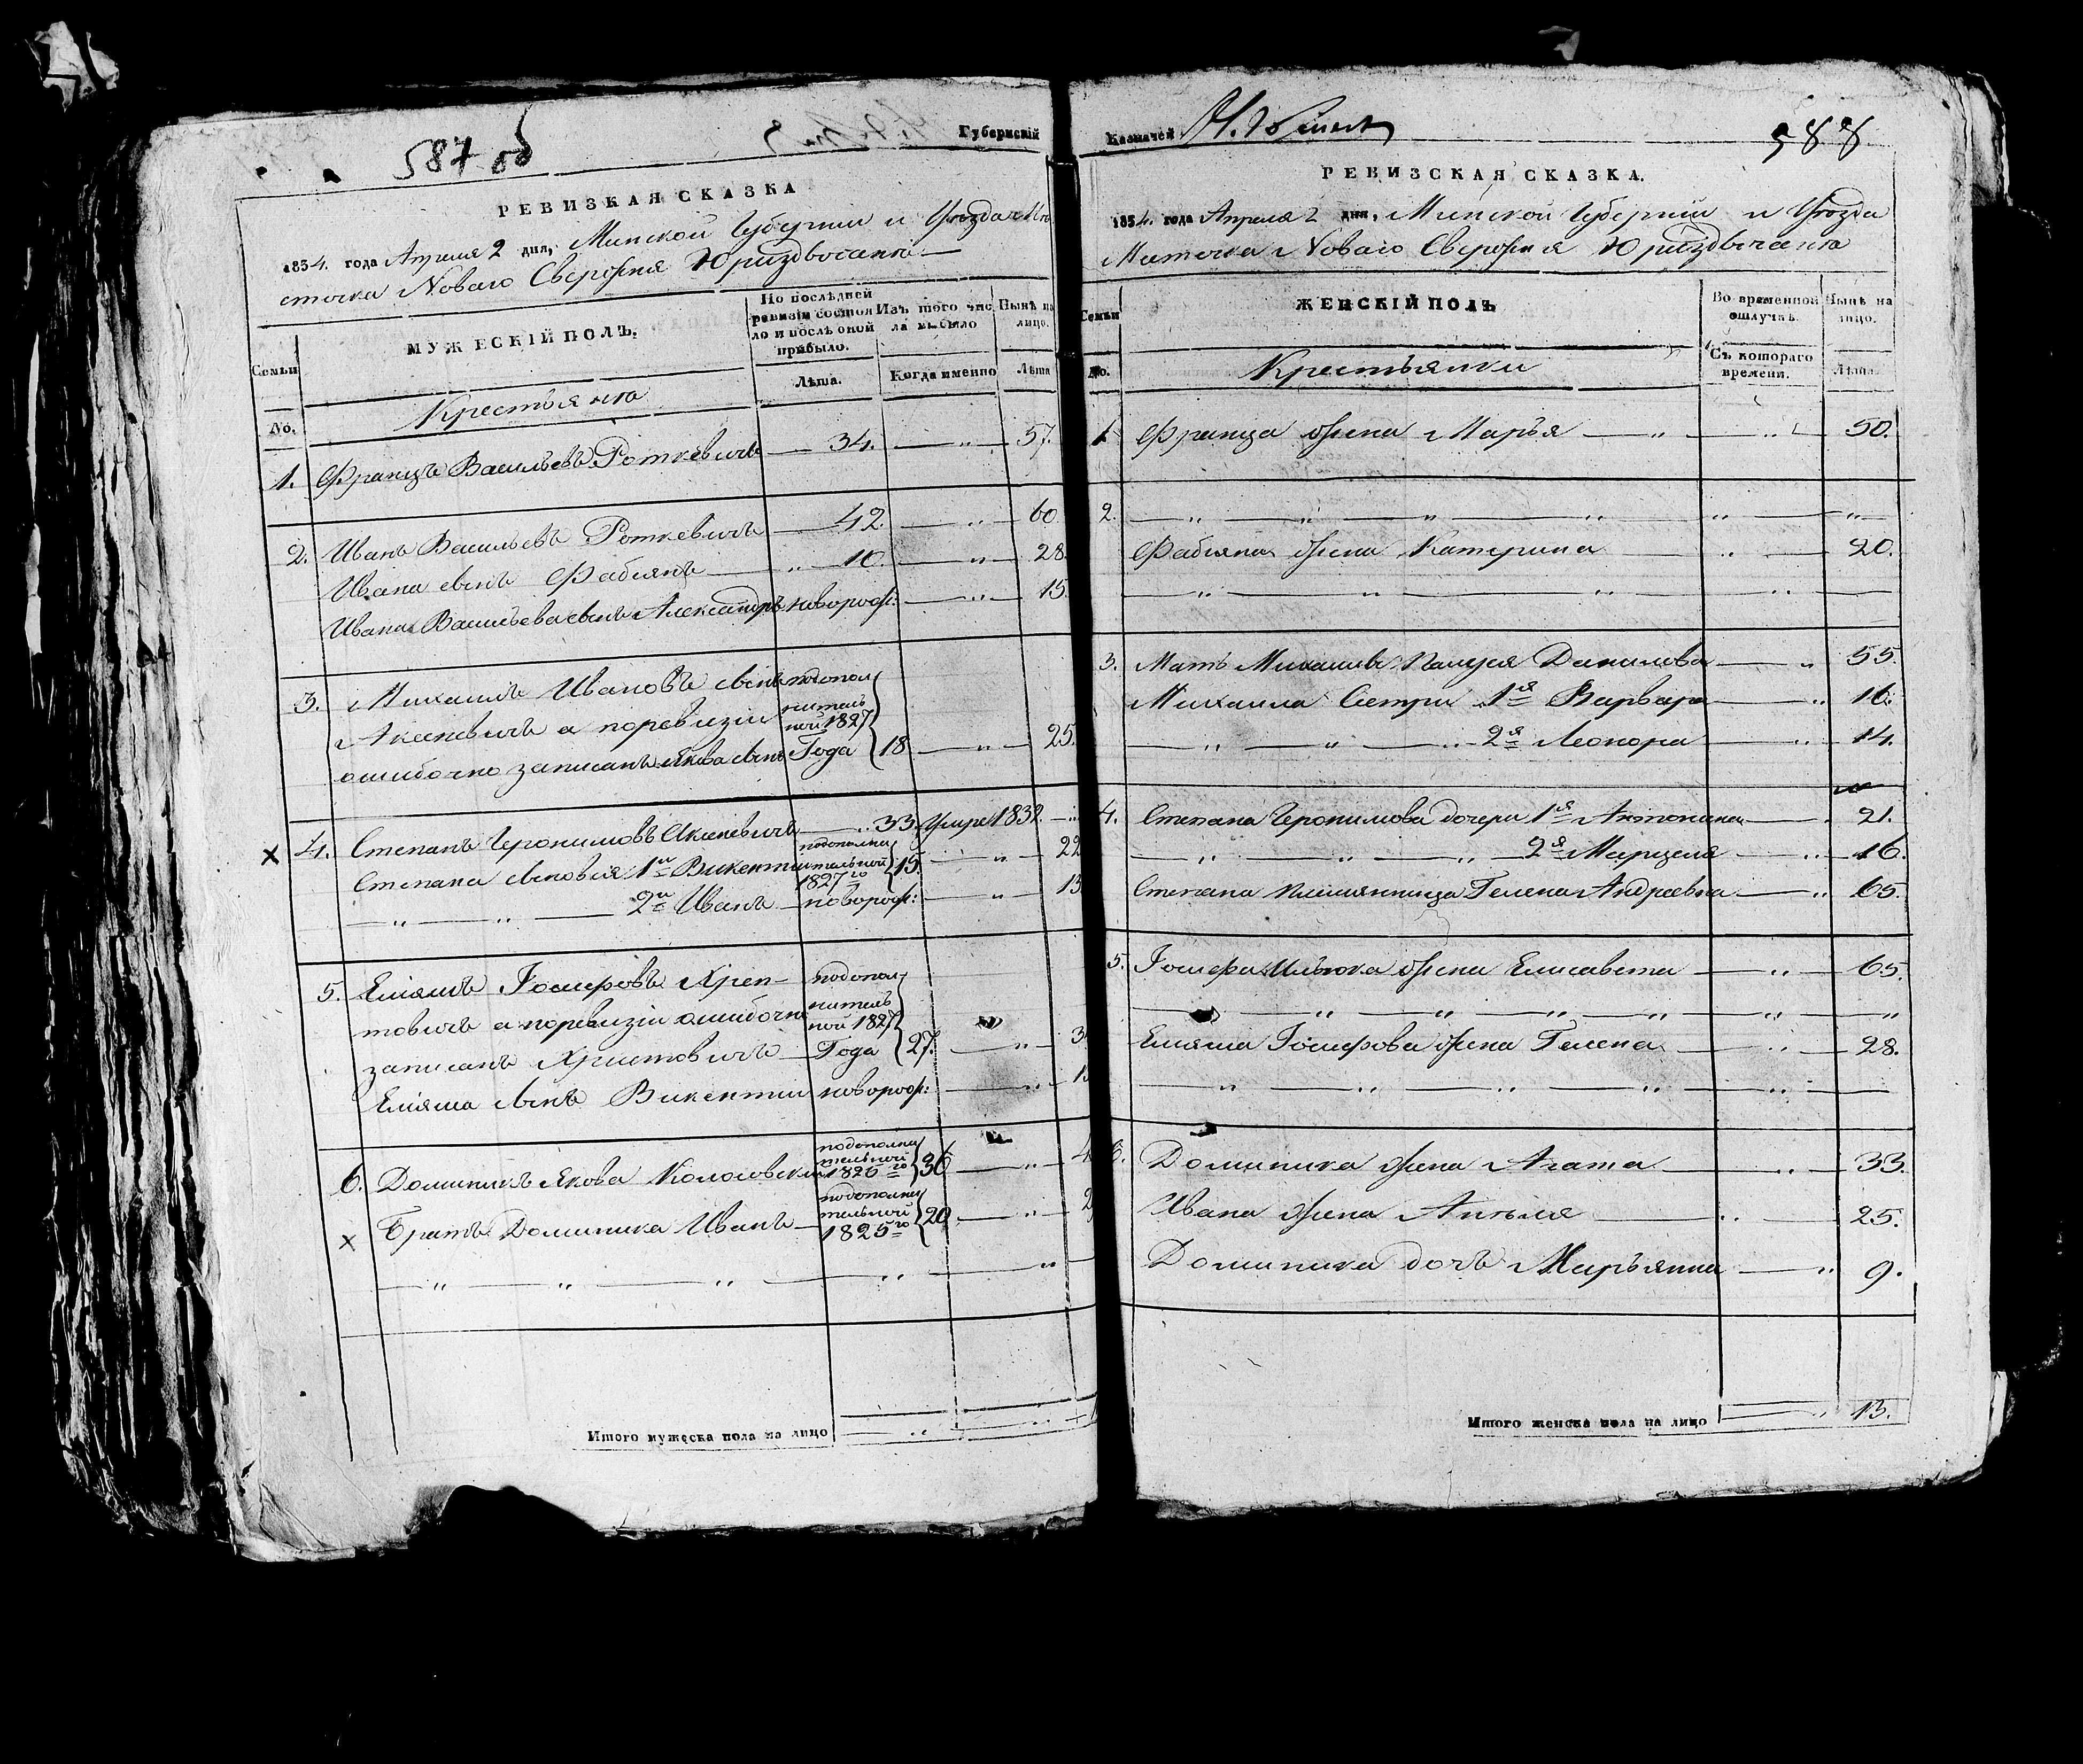 587 об
Губернскій
РЕВИЗКАЯ СКАЗКА
1834. года Апреля 2 дня, Минской Губерніи и Уезда Ме
сточка Новаго Свержня Юриздычане
Семьи
МУЖЕСКІЙ ПОЛЪ.
По послѣдней
ревизіи состоя
ло и послѣ оной
прибыло.
Изъ того чис
ла выбыло
Нынѣ на
лицо.
No.
Крестьяне
Лѣта.
Когда именно
Лѣта
1. Францъ Васильевъ Роткевичъ — 34. — „ — 57.
2. Иванъ Васильевъ Роткевичъ — 42. — „ — 60
Ивана сынъ Фабіянъ — „ 10. — „ — 28.
Ивана Васильева сынъ Александръ новорож: — „ — 15.
3. Михаилъ Ивановъ сынъ подопол
Аксневичъ а поревизіи нитель
ной 1827
ошибочно записанъ Якова сынъ Года 18 — „ — 25.
4. Степанъ Геронимовъ Аксневичъ — „ 33. Умре 1832. — „
Степана сыновья 1й Викентій подополни
тельной
1827го 15. — „ — 22
— „ — „ — 2й Иванъ — новорож: — „ — 13
5. Еліяшъ Іосифовъ Хреп- подопол
товичъ а поревизіи ошибочно нитель
ной 1827
записанъ Христовичъ — Года 27. — „ — 3
Еліяша сынъ Викентій новорож: — „ — 1
6. Доминикъ Якова Колосовскій подополни
тельной
1826го 36 — „ — 4
Братъ Доминика Иванъ — подополни
тельной
1825го 20. — „ — 2
— „ — „ — „ — „ — „ —
Итого мужеска пола на лицо
Казначей
588
РЕВИЗСКАЯ СКАЗКА.
1834. года Апреля 2 дня, Минской Губерніи и Уезда
Месточка Новаго Свержня Юриздычане
Семьи
ЖЕНСКІЙ ПОЛЪ
Во временной
отлучкѣ.
Нынѣ на
лицо.
No.
Крестьянки
Съ котораго
времени.
Лѣта.
1 Франца жена Марья — „ — „ — 50.
2. — „ — „ — „ — „ — „ — „
Фабіяна жена Катерина — „ — 20.
— „ — „ — „ — „ —
3. Мать Михаила Палуся Данилова — „ 55.
Михаила Сестри 1я Варвара — „ 16.
— „ — „ — „ 2я Леонора — „ 14.
4. Степана Геронимова дочери 1я Антонина — 21.
— „ — „ — „ — 2я Марцеля — „ 16.
Степана племянница Гелена Андреевна — „ 65.
5. Іосифа Илюка жена Елисавета — „ — 65.
— „ — „ — „ — „ — „ — „
Еліяша Іосифова жена Гелена — „ — 28.
— „ — „ — „ — „ — „ —
6. Доминика жена Агата — „ — 33.
Ивана жена Анъеля „ — 25.
Доминика дочь Маръянна — „ 9.
Итого женска пола на лицо — „ 13.